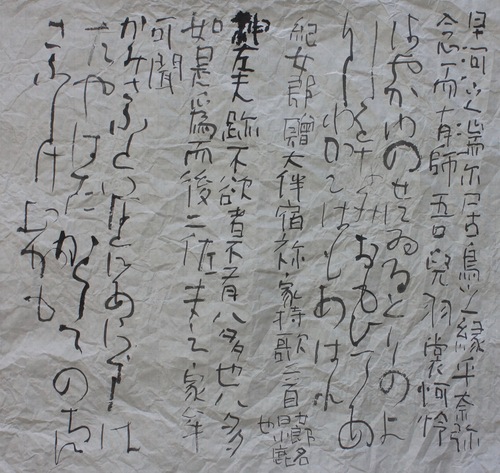 早河之湍尓居鳥之縁乎奈弥
念而有師吾兒羽裳㤎怜
はやかわのせにゐるとりのよ
しをなみおもひてあ
りしわかこはもあはれ
紀女郎贈大伴宿祢家持歌二首 女郎名曰小鹿也
神左夫跡不欲者不有八多也八多
如是爲而後二佐夫之家牟
可聞
かみさふといなにあらずは
たやはたかくしてのちに
さふしけむかも